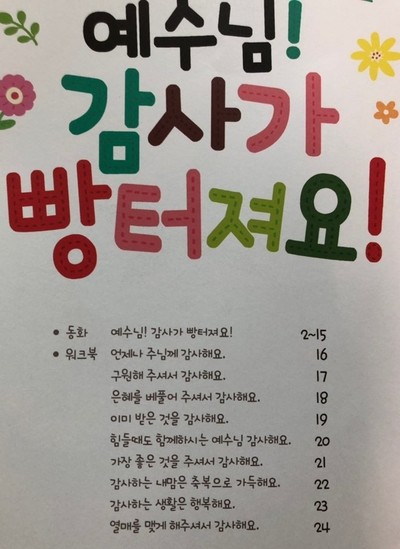 예수님!
감사가
빵터져요!
• 동화 예수님! 감사가 빵터져요! 2~15
• 워크북 언제나 주님께 감사해요. 16
구원해 주셔서 감사해요. 17
은혜를 베풀어 주셔서 감사해요. 18
이미 받은 것을 감사해요. 19
힘들때도 함께하시는 예수님 감사해요. 20
가장 좋은 것을 주셔서 감사해요. 21
감사하는 내맘은 축복으로 가득해요. 22
감사하는 생활은 행복해요. 23
열매를 맺게 해주셔서 감사해요. 24